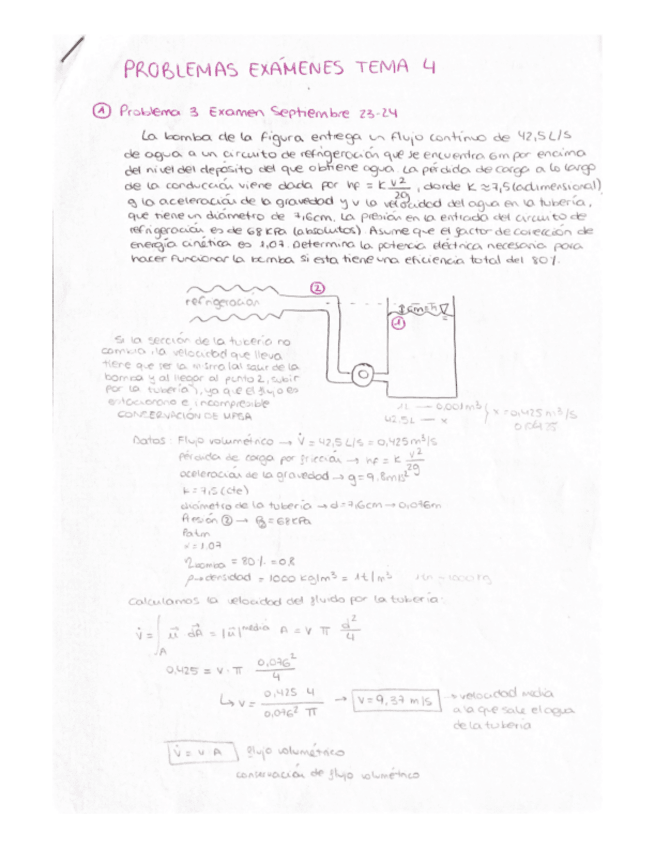 PROBLEMAS EXÁMENES TEMA 4
① Problema 3 Examen Septiembre 23-24
La bomba de la figura entrega un flujo continuo de 42,5 L/s
de agua a un circuito de refrigeración que se encuentra 6m por encima
del nivel del depósito del que obtiene agua. La pérdida de carga a lo largo
de la conducción viene dada por hf = k v²/2g, donde k ≈ 7,5 (adimensional),
g la aceleración de la gravedad y v la velocidad del agua en la tubería,
que tiene un diámetro de 7,6cm. La presión en la entrada del circuito de
refrigeración es de 68 kPa (absolutos). Asume que el factor de corrección de
energía cinética es 1,07. Determina la potencia eléctrica necesaria para
hacer funcionar la bomba si esta tiene una eficiencia total del 80%.
②
refrigeración
6m=h
①
Si la sección de la tubería no
cambia, la velocidad que lleva
tiene que ser la misma (al salir de la
bomba y al llegar al punto 2, subir
por la tubería), ya que el flujo es
estacionario e incompresible
CONSERVACIÓN DE MASA
1L — 0,001m³
42,5L — x
x = 0,425 m³/s
0,0425
Datos: Flujo volumétrico → V̇ = 42,5 L/s = 0,425 m³/s
pérdida de carga por fricción → hf = k v²/2g
aceleración de la gravedad → g = 9.8 m/s²
k = 7,5 (cte)
diámetro de la tubería → d = 7,6cm → 0,076m
Presión ② → P₂ = 68 kPa
Patm
α = 1.07
ηbomba = 80% = 0.8
ρ → densidad = 1000 kg/m³ = 1t/m³
Calculamos la velocidad del fluido por la tubería:
V̇ = ∫A u⃗ dA⃗ = |u⃗|media A = v π d²/4
0.425 = v · π 0,076²/4
↳ v = 0,425 4 / 0,076² π → v = 9,37 m/s → velocidad media
a la que sale el agua
de la tubería
V̇ = v A flujo volumétrico
conservación de flujo volumétrico